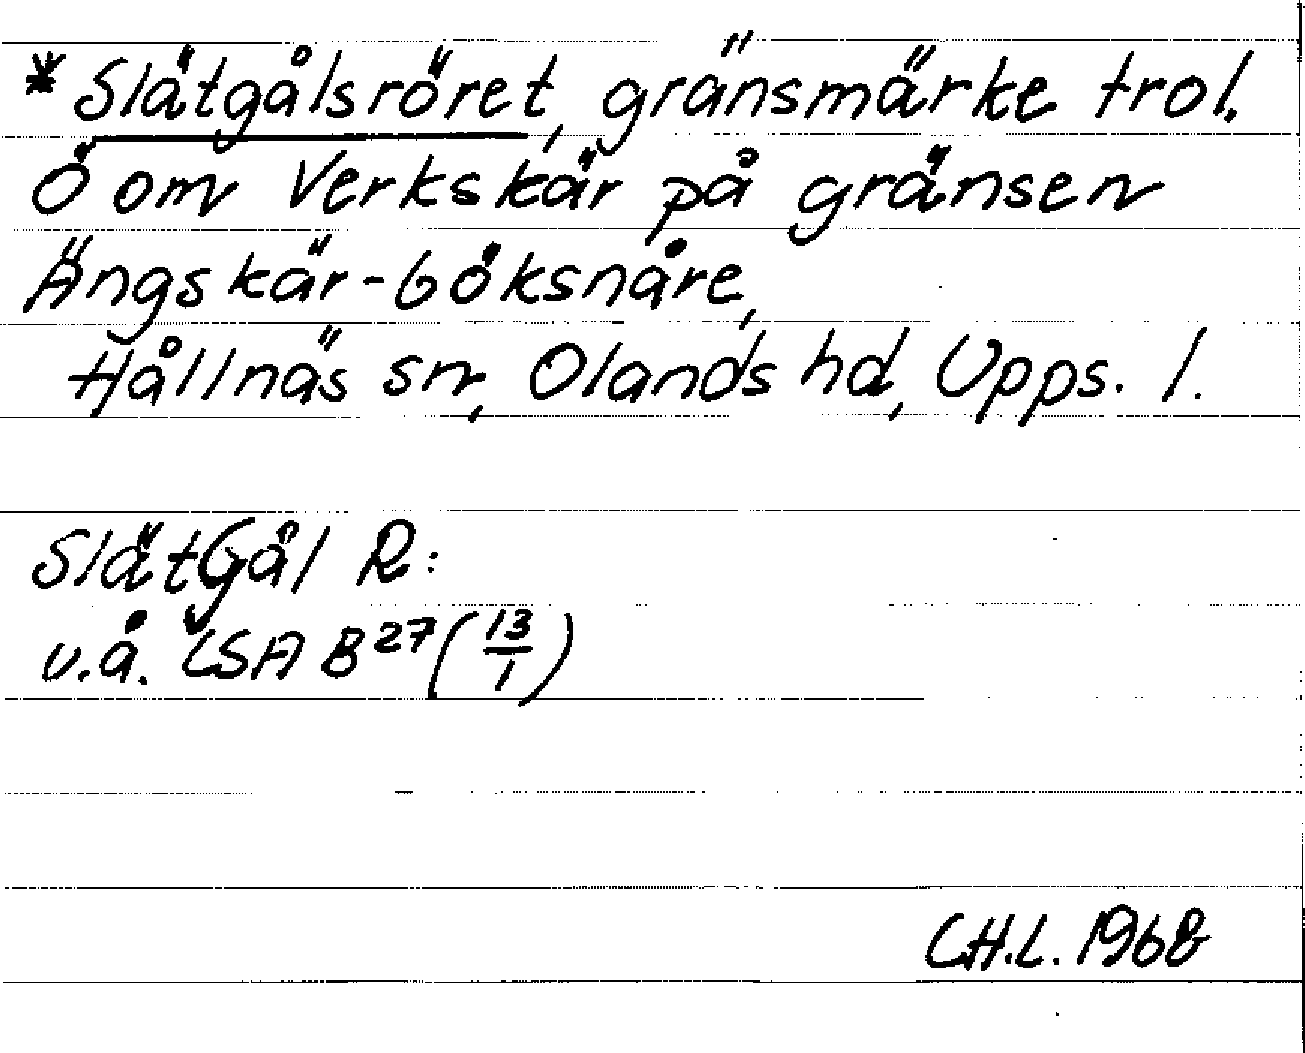 * Slätgålsröret, gränsmärke trol.
Ö om Verkskär på gränsen
Ängskär-Böksnåre,
Hållnäs sn, Olands hd, Upps. l.
SlätGål R:
u.å. LSA B 27 (13/1)
CH.L. 1968